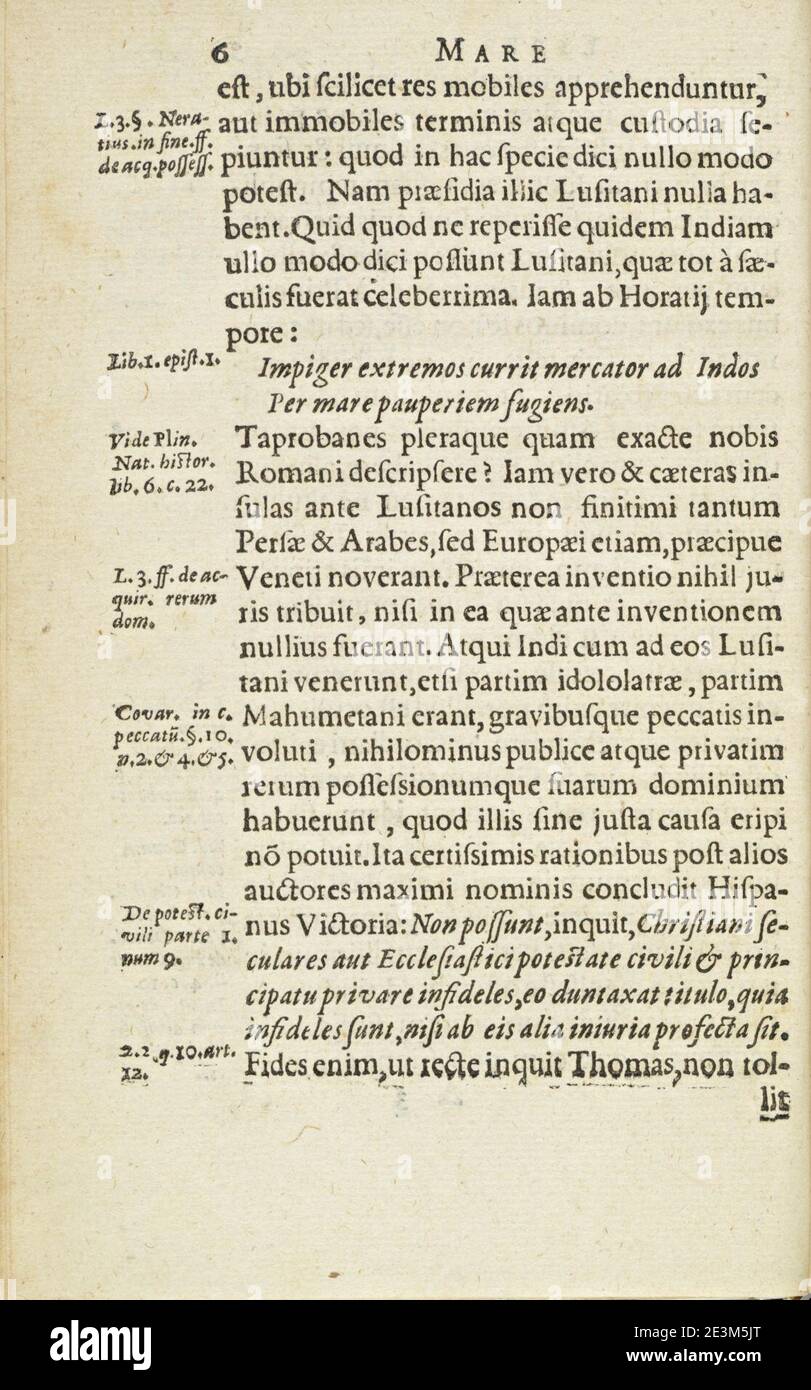 6 MARE
eſt, ubi ſcilicet res mobiles apprehenduntur,
aut immobiles terminis atque cuſtodia ſe-
piuntur: quod in hac ſpecie dici nullo modo
poteſt. Nam præſidia illic Luſitani nulla ha-
bent. Quid quod ne reperiſſe quidem Indiam
ullo modo dici poſſunt Luſitani, quæ tot à ſæ-
culis fuerat celeberrima. Iam ab Horatij tem-
pore:
Impiger extremos currit mercator ad Indos
Per mare pauperiem fugiens.
Taprobanes pleraque quam exacte nobis
Romani deſcripſere? Iam vero & cæteras in-
ſulas ante Luſitanos non finitimi tantum
Perſæ & Arabes, ſed Europæi etiam, præcipue
Veneti noverant. Præterea inventio nihil ju-
ris tribuit, niſi in ea quæ ante inventionem
nullius fuerant. Atqui Indi cum ad eos Luſi-
tani venerunt, etſi partim idololatræ, partim
Mahumetani erant, gravibuſque peccatis in-
voluti, nihilominus publice atque privatim
rerum poſſeſſionumque ſuarum dominium
habuerunt, quod illis ſine juſta cauſa eripi
nõ potuit. Ita certiſſimis rationibus poſt alios
auctores maximi nominis concludit Hiſpa-
nus Victoria: Non poſſunt, inquit, Chriſtiani ſe-
culares aut Eccleſiaſtici poteſtate civili & prin-
cipatu privare infideles, eo duntaxat titulo, quia
infideles ſunt, niſi ab eis alia iniuria profecta ſit.
Fides enim, ut recte inquit Thomas, non tol-
lit
L.3.§. Nera-
tius. in fine. ff.
de acq. poſſeſſ.
Lib.1. epiſt.1.
Vide Plin.
Nat. hiſtor.
lib. 6. c. 22.
L. 3. ff. de ac-
quir. rerum
dom.
Covar. in c.
peccatũ. §. 10.
n. 2. & 4. & 5.
De poteſt. ci-
vili parte 1.
num 9.
2.2. q. 10. art.
12.
alamy
Image ID: 2E3M5JT
www.alamy.com